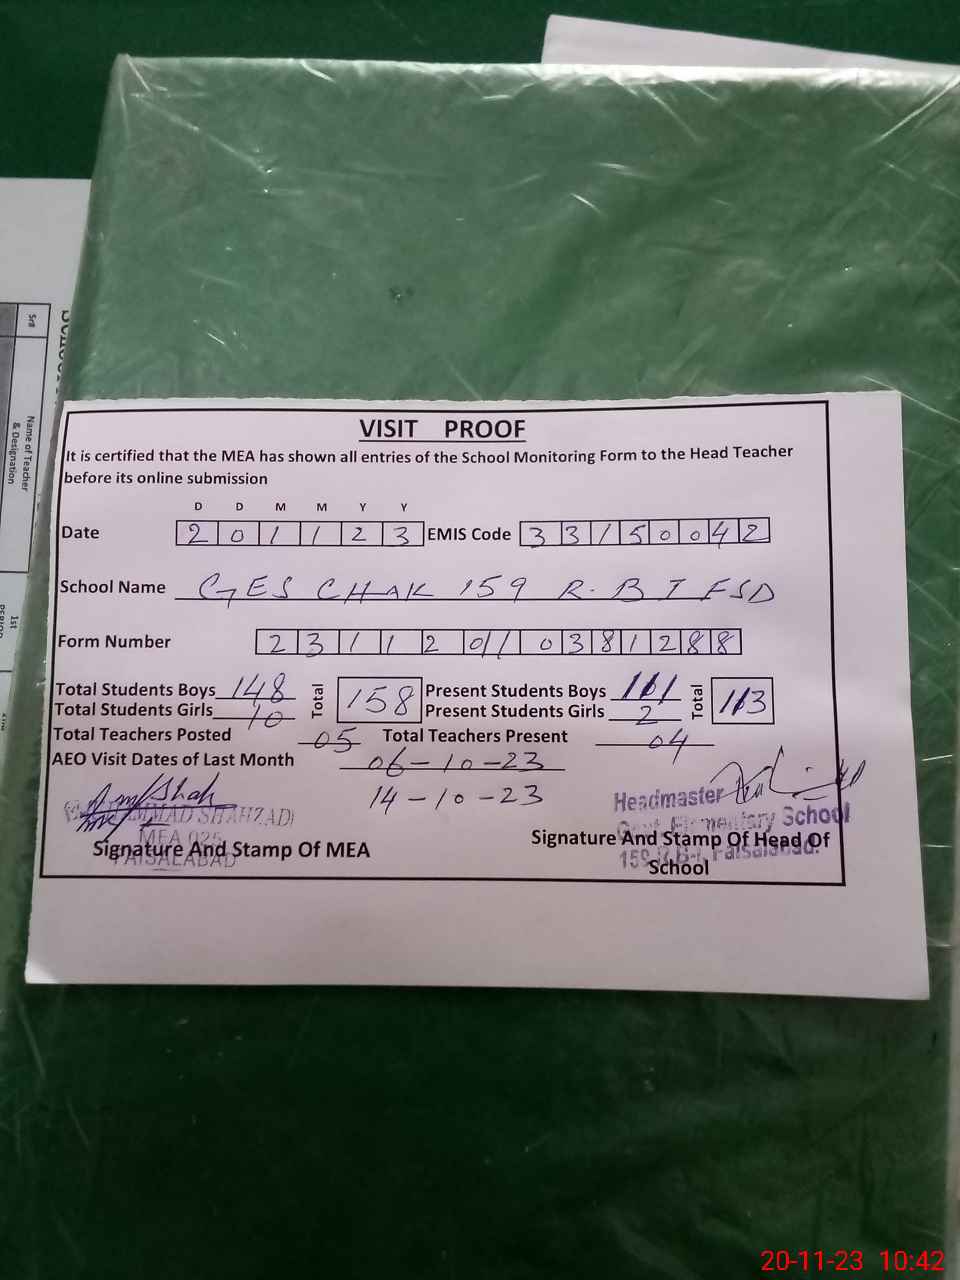 Sr#
Name of Teacher
& Designation
1st
VISIT PROOF
It is certified that the MEA has shown all entries of the School Monitoring Form to the Head Teacher
before its online submission
D D M M Y Y
Date 2 0 1 1 2 3 EMIS Code 3 3 1 5 0 0 4 2
School Name GES CHAK 159 R.B I FSD
Form Number 2 3 1 1 2 0 1 0 3 8 1 2 8 8
Total Students Boys 148 Total 158 Present Students Boys 111 Total 113
Total Students Girls 10 Present Students Girls 2
Total Teachers Posted 05 Total Teachers Present 04
AEO Visit Dates of Last Month 06-10-23
14-10-23
MUHAMMAD SHAHZAD
MEA 025
FAISALABAD
Signature And Stamp Of MEA
Headmaster
Govt. Elementary School
159 R.B-I, Faisalabad.
Signature And Stamp Of Head Of
School
20-11-23 10:42